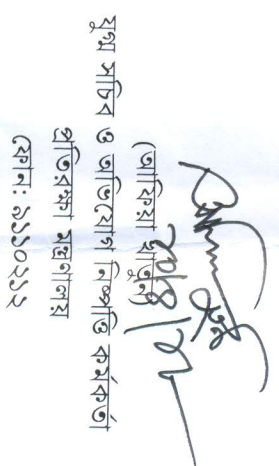 (আছিয়া খাতুন)
যুগ্ম সচিব ও অভিযোগ নিষ্পত্তি কর্মকর্তা
প্রতিরক্ষা মন্ত্রণালয়
ফোন: ৯১১০২১২